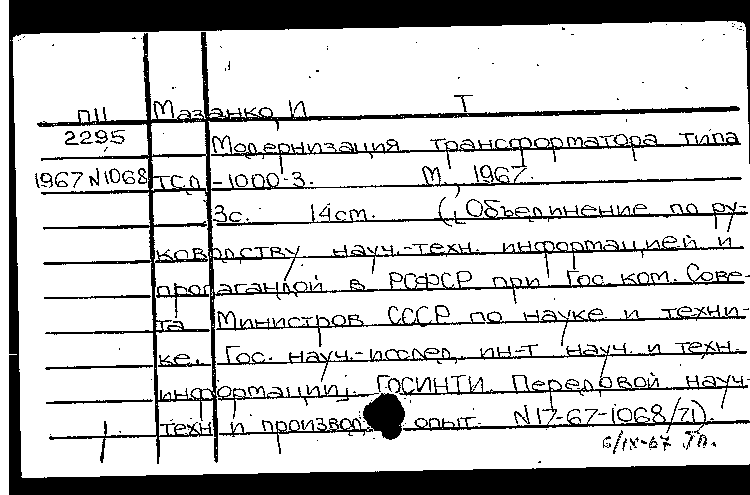 ПII Мазанко, И Т
2295 Модернизация трансформатора типа
1967 N1068 ТСД-1000-3. М., 1967.
3с. 14см. ([Объединение по ру-
ководству науч.-техн. информацией и
пропагандой в РСФСР при Гос. ком. Сове-
та Министров СССР по науке и техни-
ке. Гос. науч.-исслед. ин-т науч. и техн.
информации]. ГОСИНТИ. Передовой науч-
техн и производ. опыт. N17-67-1068/71).
6/IX-67